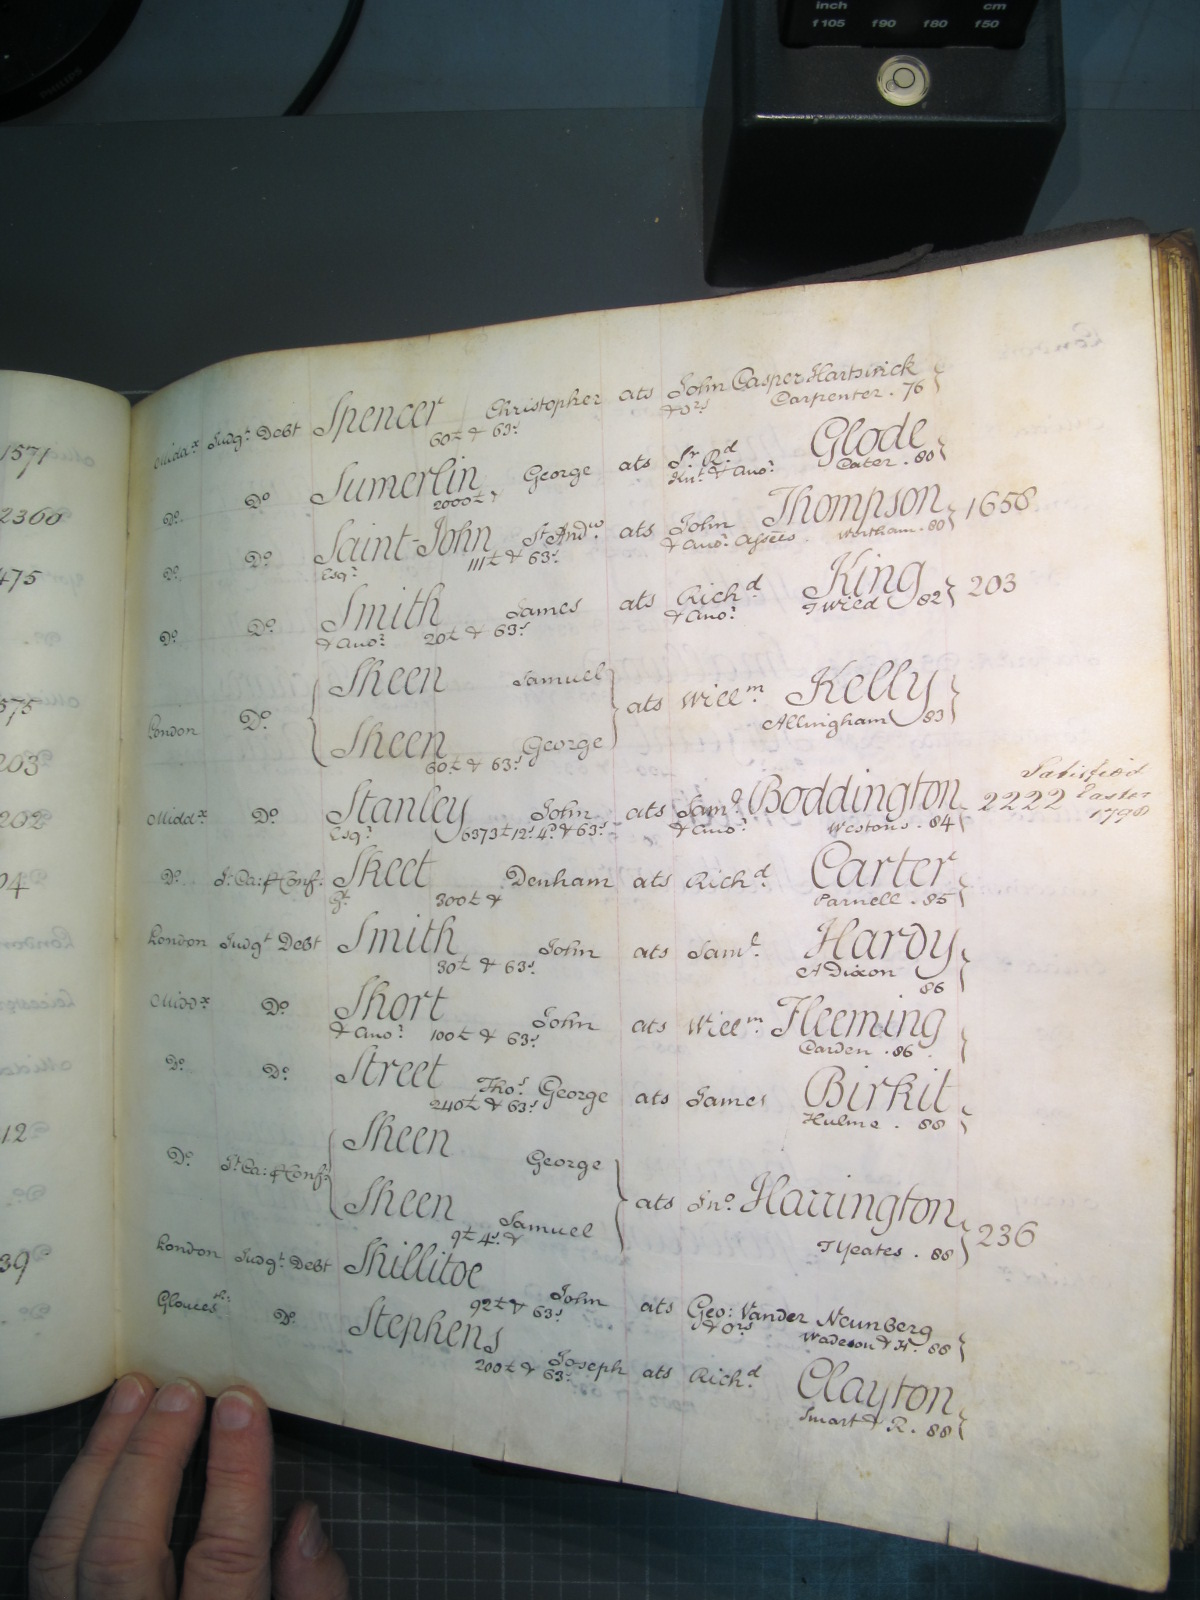 inch cm
f105 f90 f80 f50
PHILIPS
1571
2366
475
575
203
202
94
12
39
Midd.x Judg.t Debt Spencer Christopher ats John Casper Hartwick
60£ & 63s & Ors Carpenter . 76
Do. Do. Sumerlin George ats Sr. Rd. Glode
2000£ & Knt. & Ano.r Cater . 80
Do. Do. Saint-John St. Andw. ats John Thompson 1658
Esqr. 111£ & 63s. & Ano.r Assees. Wortham . 80
Do. Do. Smith James ats Richd. King 203
& Ano.r 20£ & 63s. Tweed 82
Sheen Samuel
London Do. ats Willm. Kelly
Allingham 83
Sheen George
60£ & 63s.
Satisfied
Midd.x Do. Stanley John ats Saml. Boddington 2222 Easter
Esqr. 6373£ 12s. 4d. & 63s. & Ano.r Westons . 84 1798
Do. St. Ca: & Conf. Skeet Denham ats Richd. Carter
300£ & Parnell . 85
London Judg.t Debt Smith John ats Saml. Hardy
30£ & 63s. A Dixon 86
Midd.x Do. Short John ats Willm. Fleeming
& Ano.r 100£ & 63s. Carden . 86
Do. Do. Street Thos. George ats James Birkit
240£ & 63s. Hulme . 88
Sheen George
Do. St. Ca: & Conf.
Sheen Samuel ats Jno. Harrington 236
9£ 4s. & T Yeates . 88
London Judg.t Debt Shillitoe John ats Geo: Vander Neunberg
92£ & 63s. & Ors Wadeson & H. 88
Gloucesr.: Do. Stephens Joseph ats Richd. Clayton
200£ & 63s. Smart & R. 88